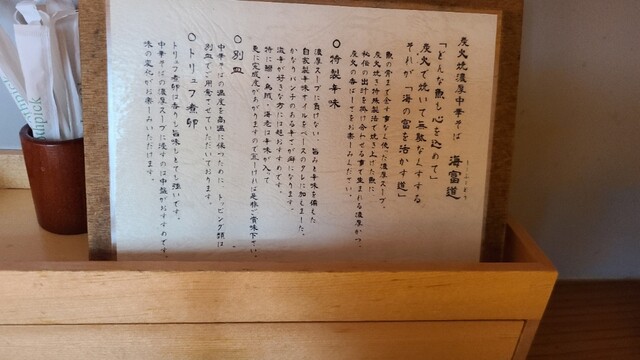 炭火焼濃厚中華そば 海富道
「どんな魚も心を込めて」
炭火で焼いて無駄なくする
それが「海の富を活かす道」
魚の骨まで余す事なく使った濃厚スープ。
炭火焼き特殊製法で焼き上げた魚に
秘伝の出汁を掛け合わせる事で生まれる濃厚かつ、
炭火の香ばしさをお楽しみください。
○特製辛味
濃厚スープに負けない、旨みと辛味を備した
自家製辛味オイルをベースのタレに加えました。
かなりパンチのある辛さが癖になります。
辛海が好きな方には超おすすめです。
特に鯛・烏賊・海老は辛味が入って
更に完成度があがりますので宜しければ是非ご賞味下さい。
○別皿
中華そばの温度を高温に保つために、トッピング類は
別皿でご用意させていただいております。
○トリュフ煮卵
トリュフ煮卵は香りも旨味もとても強いです。
中華そばの濃厚スープに浸すのは中盤がおすすめです。
味の変化がお楽しみいただけます。